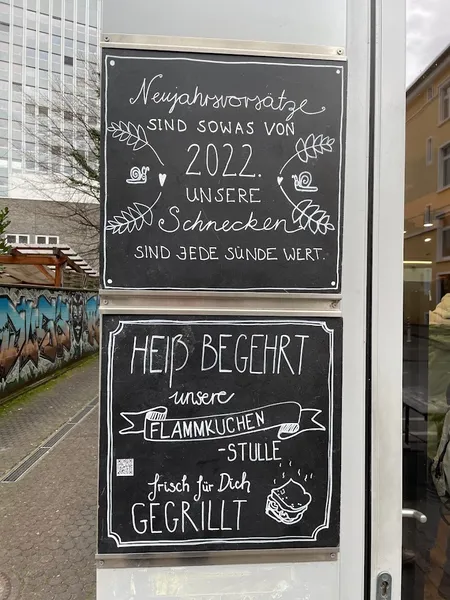 Neujahrsvorsätze
SIND SOWAS VON
2022.
UNSERE
Schnecken
SIND JEDE SÜNDE WERT.
HEIß BEGEHRT
unsere
FLAMMKUCHEN
-STULLE
frisch für Dich
GEGRILLT